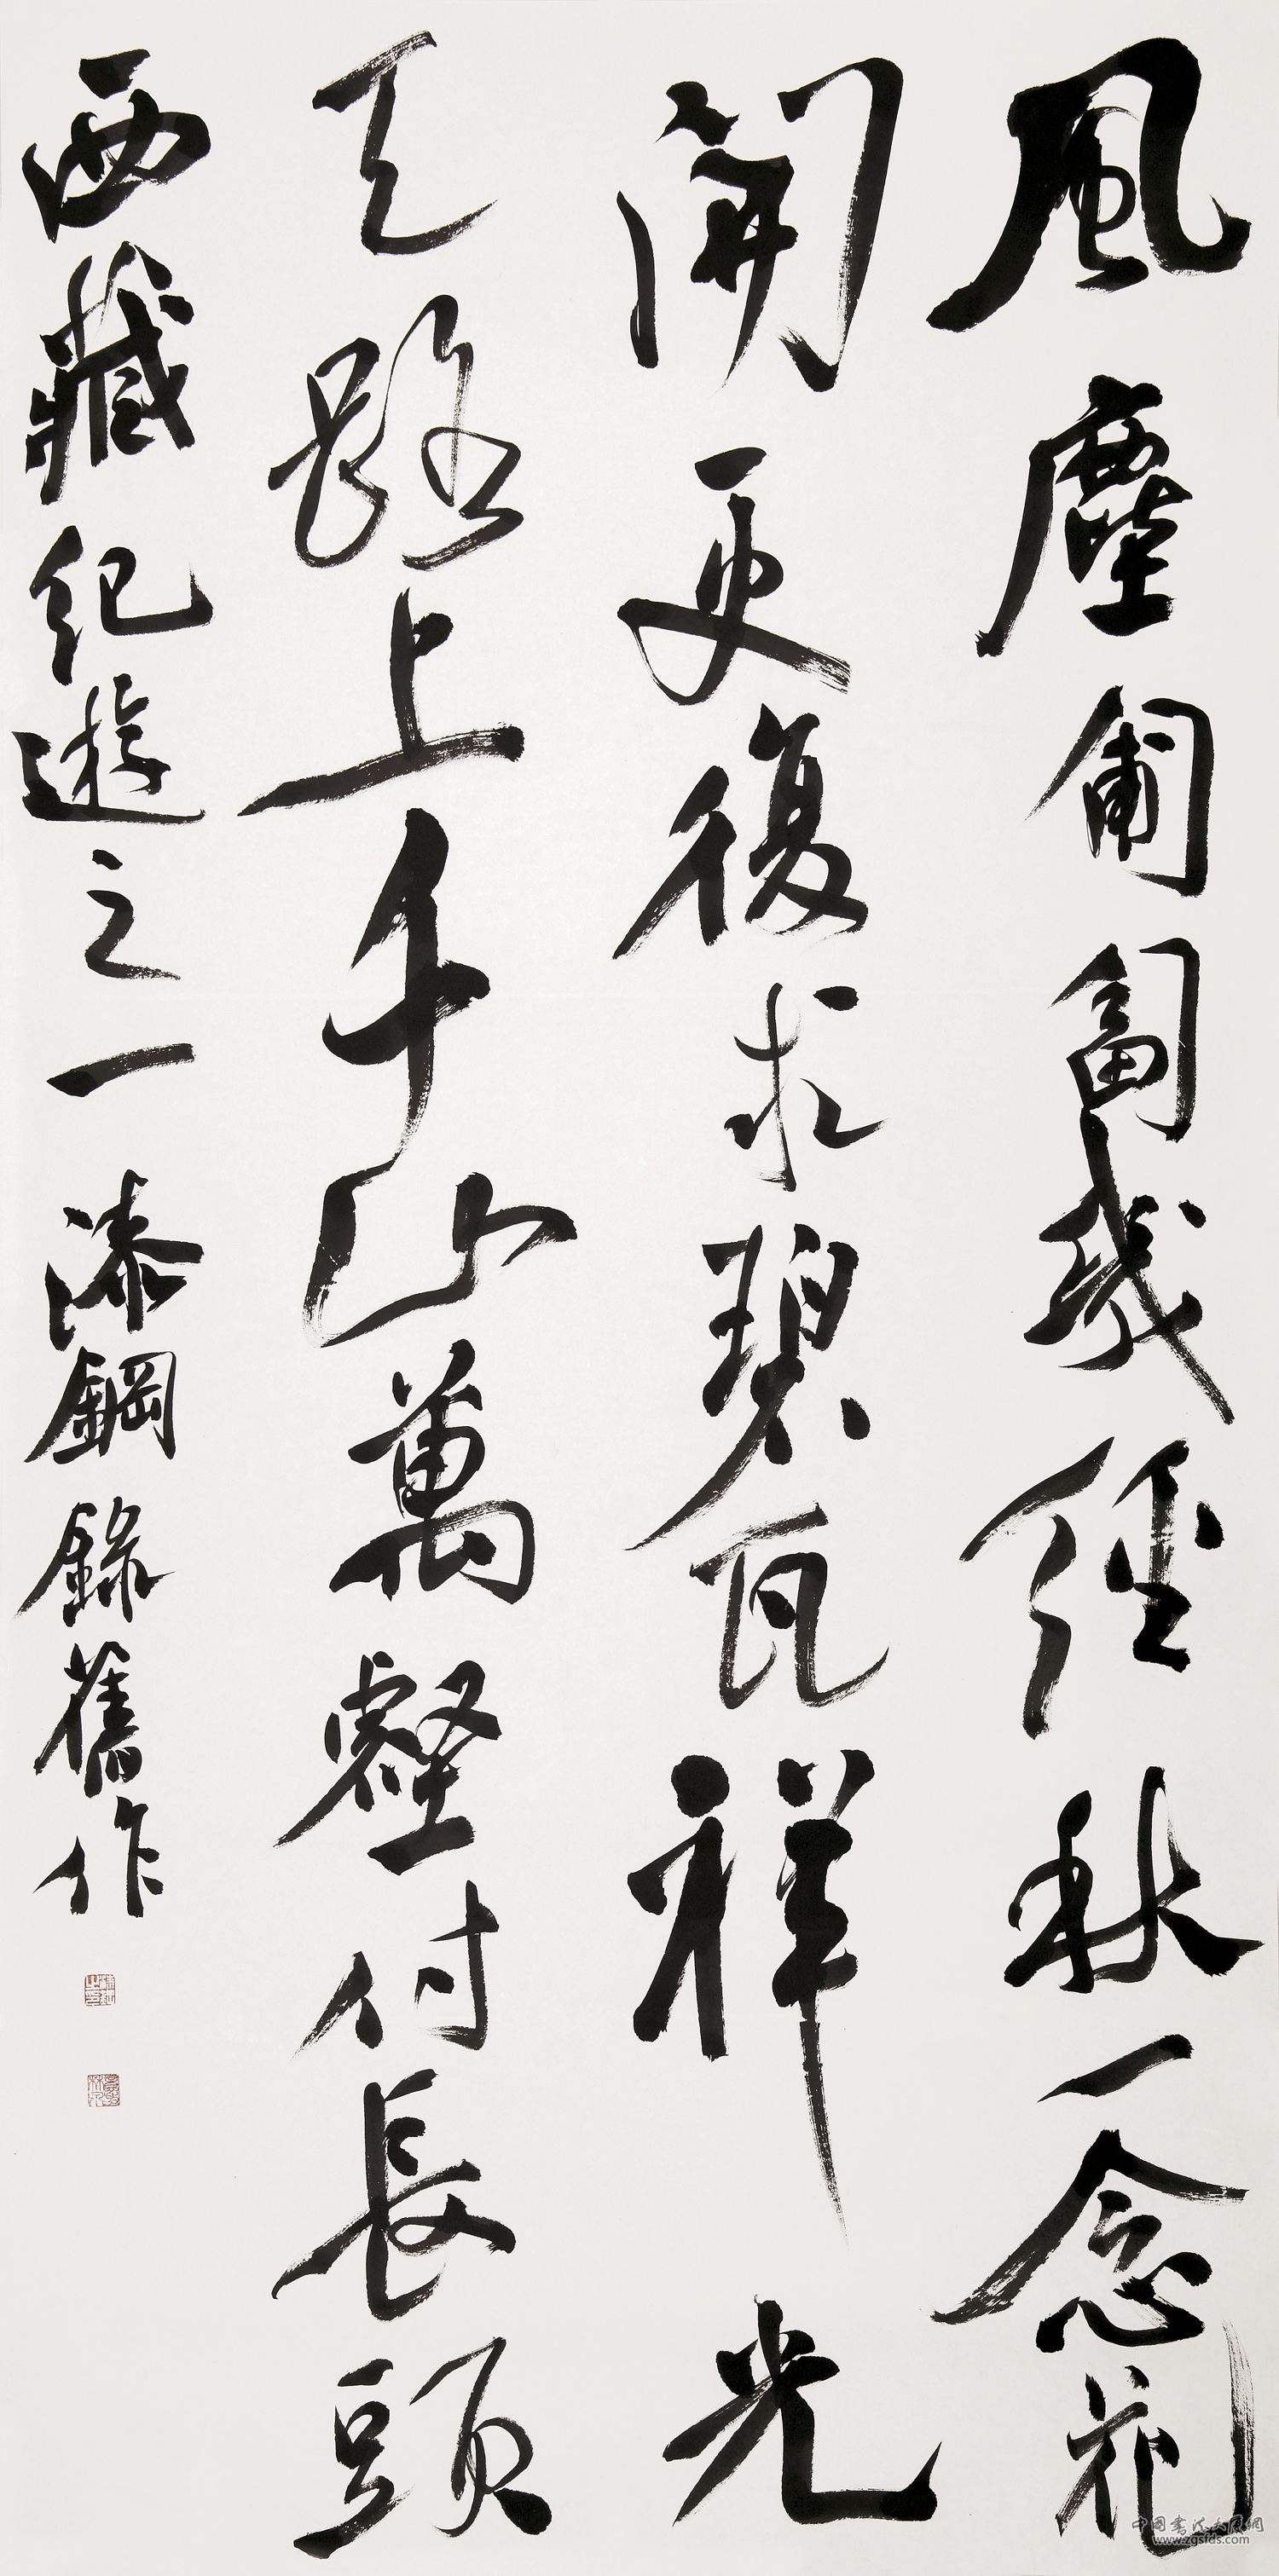 風塵匍匐幾經秋一念花
開更復求碧瓦祥光
天路上千山萬壑付長頭
西藏紀遊之一 漆鋼錄舊作
中国书法大风网
www.zgsfds.com